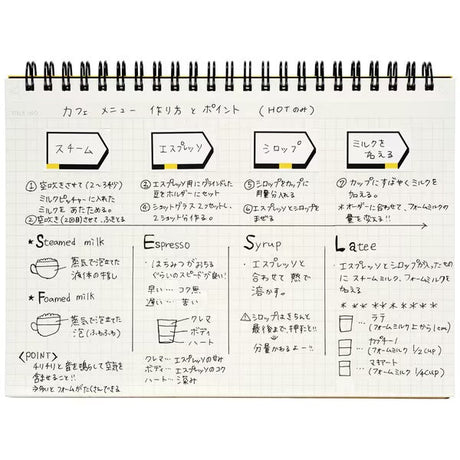 カフェ メニュー 作り方とポイント (HOTのみ)
スチーム
エスプレッソ
シロップ
ミルクを
加える
①空吹きさせて(2〜3秒)
ミルクピッチャーに入れた
ミルクをあたためる。
②空吹き(2回目)させ、ふきとる
③エスプレッソ用にグラインドした
豆をホルダーにセット
④ショットグラス2つセットし、
2ショット分作る。
⑤シロップをカップに
用量分入れる
⑥エスプレッソとシロップを
まぜる
⑦カップにすばやくミルクを
加える。
*オーダーに合わせて、フォームミルクの
量を変える!!
* Steamed milk
蒸気で泡立てた
液体の牛乳
* Foamed milk
蒸気で泡立てた
泡(ふわふわ)
<POINT>
チリチリと音を鳴らして空気を
含ませること!!
フォームがたくさんできる
Espresso
・はちみつがおちる
ぐらいのスピードが良い!
早い… コク無
遅い… 苦い
クレマ
ボディ
ハート
クレマ… エスプレッソの甘み
ボディ… エスプレッソのコク
ハート… 深み
Syrup
・エスプレッソと
合わせて 熱で
溶かす。
⚠シロップはきちんと
最後まで、押すこと!
分量かわるよー!!
Latee
・エスプレッソとシロップが入ったもの
にスチームミルク、フォームミルクを
加える
* * * * * * * * *
ラテ
(フォームミルク上から1cm)
カプチーノ
(フォームミルク 1/2cup)
マキアート
(フォームミルク 1/4cup)